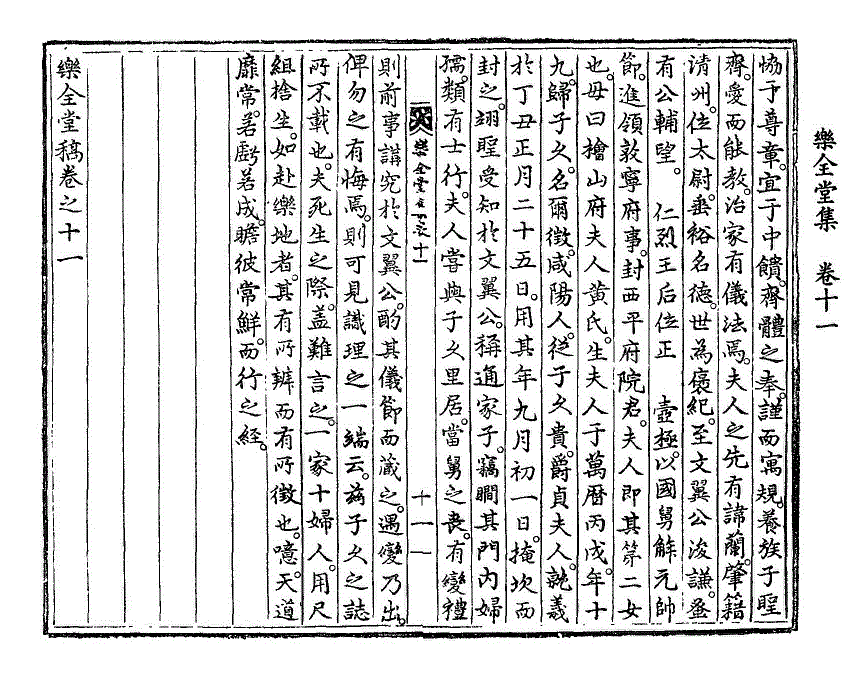 樂全堂集　卷十一
恊于尊章。宜于中饋。齊體之奉。謹而寓規。養族子聖
齊。愛而能教。治家有儀法焉。夫人之先有諱蘭。肇籍
清州。位太尉。垂裕名德。世為褒紀。至文翼公浚謙。蚤
有公輔望。　仁烈王后位正　壼極。以國舅解元帥
節。進領敦寧府事。封西平府院君。夫人即其第二女
也。毋曰檜山府夫人黃氏。生夫人于萬曆丙戌。年十
九。歸子久。名爾徵。咸陽人。從子久貴。爵貞夫人。就義
於丁丑正月二十五日。用其年九月初一日。掩坎而
封之。翊聖受知於文翼公。稱通家子。竊瞷其門內婦
孺。類有士行。夫人嘗與子久里居。當舅之喪。有變禮
樂全堂 卷十一　十一
則前事講究於文翼公。酌其儀節而藏之。遇變乃出。
俾勿之有悔焉。則可見識理之一端云。茲子久之誌
所不載也。夫死生之際。盖難言之。一家十婦人。用尺
組捨生。如赴樂地者。其有所辨而有所徵也。噫。天道
靡常。若虧若成。瞻彼常鮮。而行之經。
樂全堂稿卷之十一